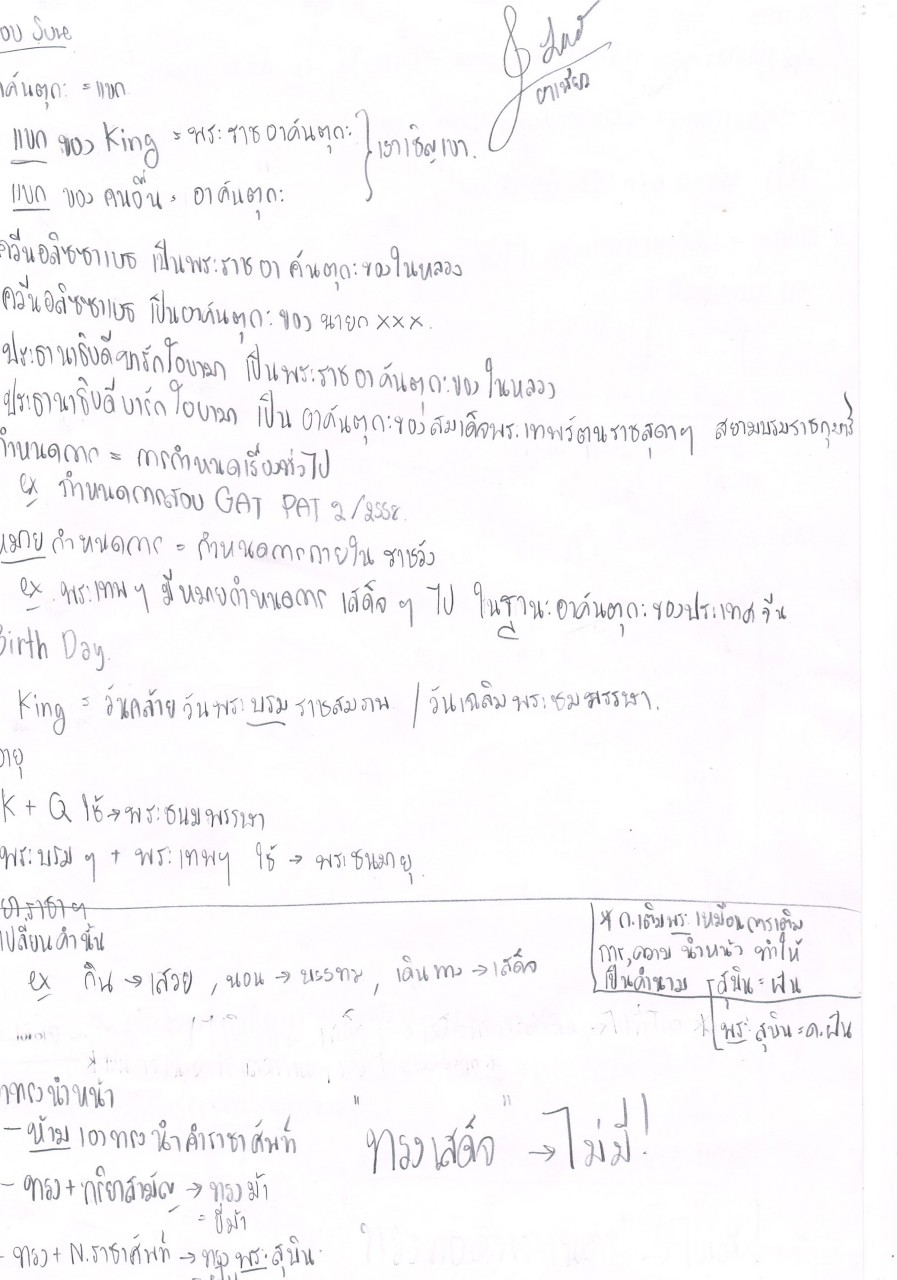 อาคันตุกะ = แขก
แขก ของ King = พระราชอาคันตุกะ } เขาเชิญเขา.
แขก ของ คนอื่น = อาคันตุกะ
ควีนอลิซซาเบธ เป็นพระราชอาคันตุกะของในหลวง
ควีนอลิซซาเบธ เป็นอาคันตุกะ ของ นายก xxx.
ประธานาธิบดีบารักโอบามา เป็นพระราชอาคันตุกะของในหลวง
ประธานาธิบดีบารักโอบามา เป็น อาคันตุกะของสมเด็จพระเทพรัตนราชสุดาฯ สยามบรมราชกุมารี
กำหนดการ = การกำหนดเรื่องทั่วไป
ex กำหนดการสอบ GAT PAT 2/2558.
หมายกำหนดการ = กำหนดการภายใน ราชวัง
ex. พระเทพฯ มีหมายกำหนดการ เสด็จฯ ไป ในฐานะอาคันตุกะของประเทศจีน
Birth Day.
King = วันคล้ายวันพระบรมราชสมภพ / วันเฉลิมพระชมพรรษา.
อายุ
K + Q ใช้ → พระชนมพรรษา
พระบรมฯ + พระเทพฯ ใช้ → พระชนมายุ
ราชาฯ
เปลี่ยนคำนั้น
ex กิน → เสวย , นอน → บรรทม , เดินทาง → เสด็จ
* ก.เติมพระ เหมือนการเติม
การ, ความ นำหน้า ทำให้
เป็นคำนาม
สุบิน = ฝัน
* พระสุบิน = ค.ฝัน
ทรงนำหน้า
- ห้าม เอาทรงนำคำราชาศัพท์
"ทรงเสด็จ" → ไม่มี!
- ทรง + กริยาสามัญ → ทรงม้า
= ขี่ม้า
- ทรง + N.ราชาศัพท์ → ทรงพระสุบิน